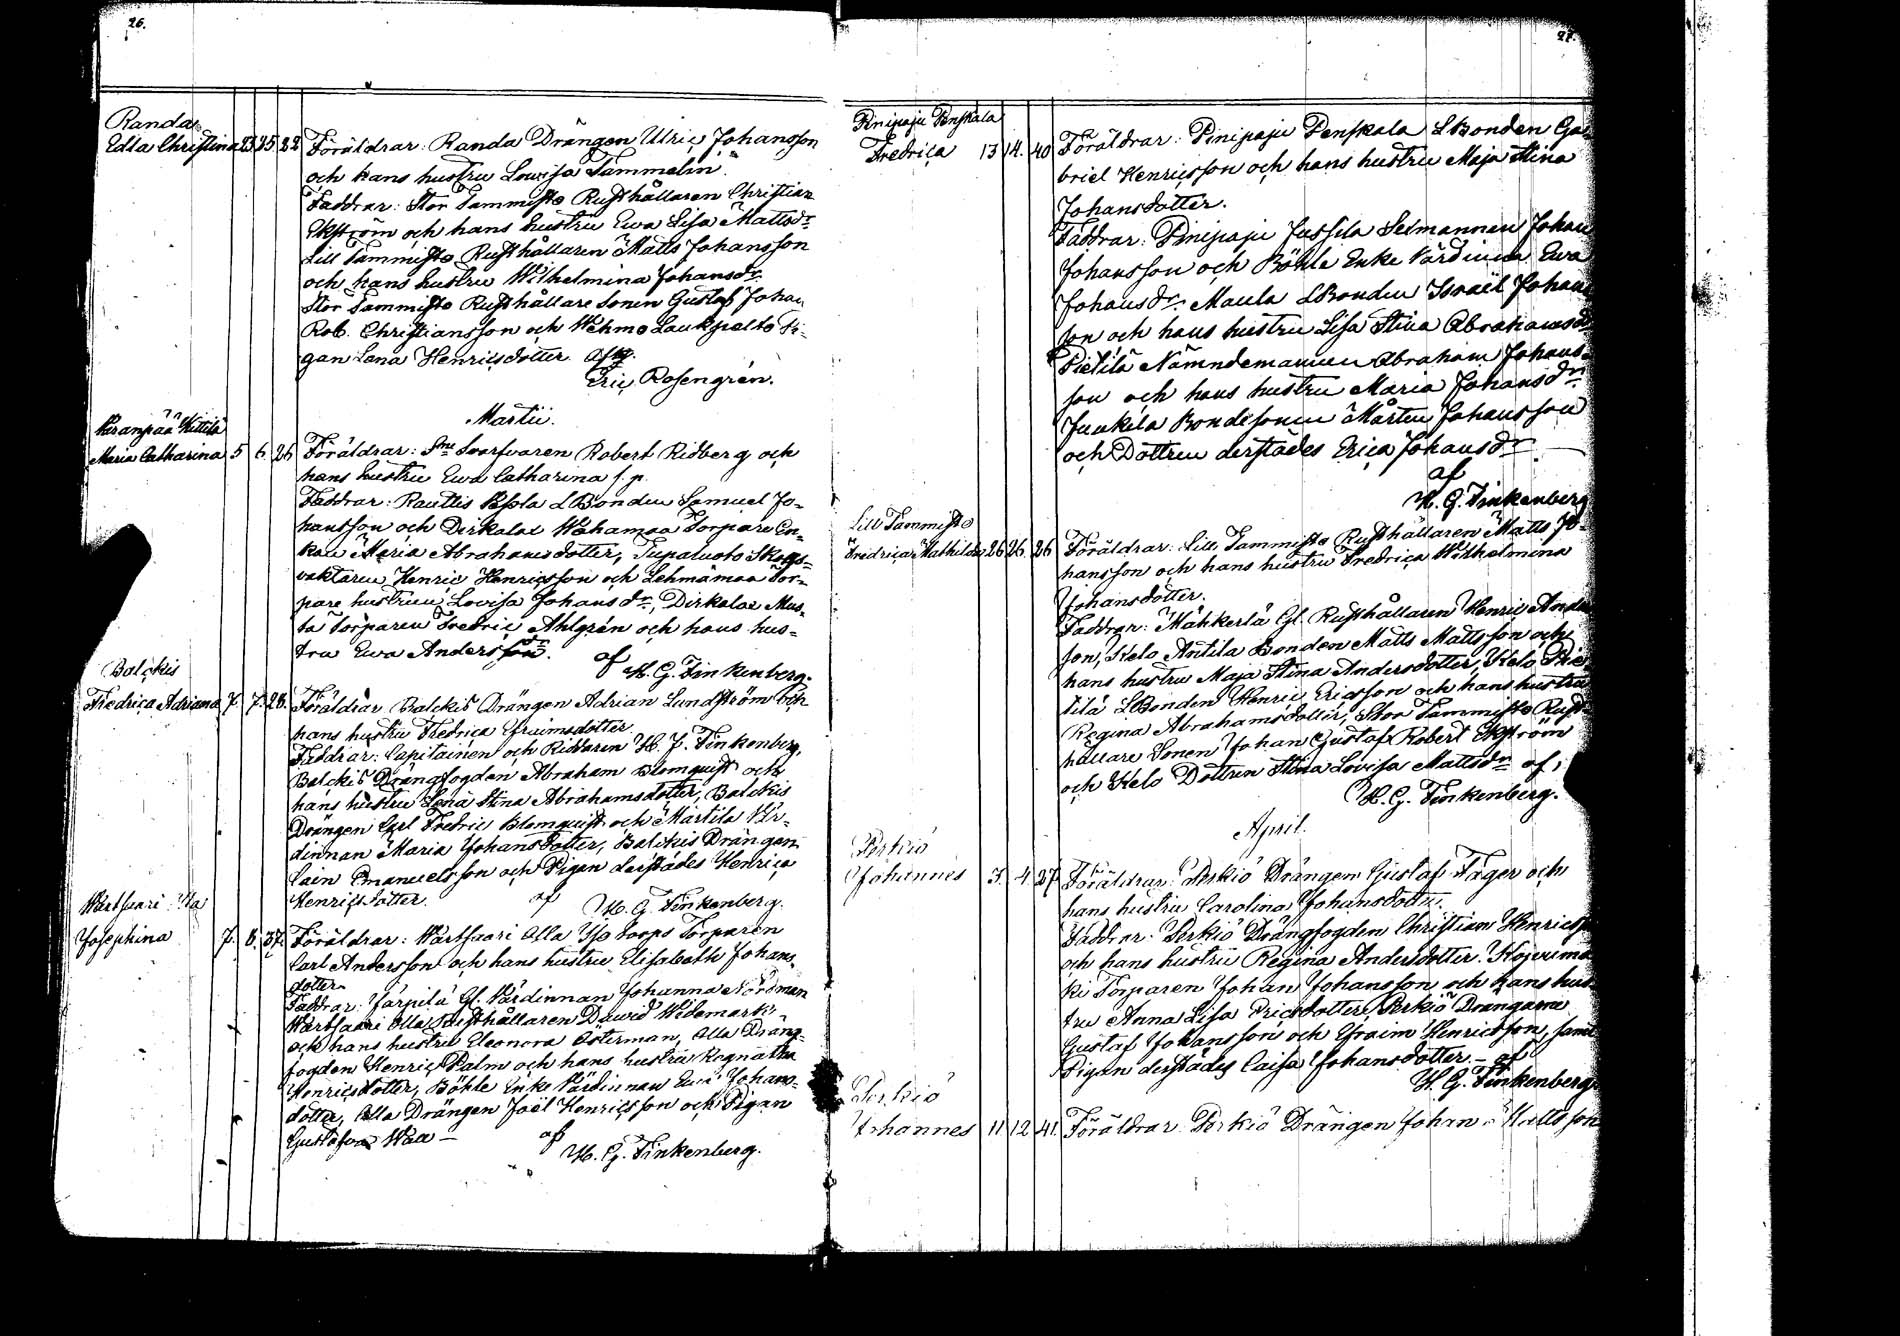 26.
Randa
Edla Christina 23 25 22 Föräldrar: Randa Drängen Ulric Johansson
och hans hustru Lovisa Tammelin.
Faddrar: Stor Tammisto Rusthållaren Christian
Ekström och hans hustru Ewa Lisa Mattsdr
Lill Tammisto Rusthållaren Matts Johansson
och hans hustru Wilhelmina Johansdr
Stor Tammisto Rusthållare Sonen Gustaf Johan
Rob. Christiansson och Wehmo Laukpalto Pi-
gan Lena Henricsdotter. af
Eric Rosengrén.
Martii.
Kettilä
Maria Catharina 5 6 26 Föräldrar: Sne Svarfvaren Robert Ridberg och
hans hustru Ewa Catharina f. p.
Faddrar: Rautlis LBonden Samuel Jo-
hansson och Dirkalax Wahamaa Torpare En-
kan Maria Abrahamsdotter, Tupaluoto Skogs-
vaktaren Henric Henricsson och Lehmämaa Tor-
pare hustrun Lovisa Johansdr, Dirkalax Mus-
ta Torparen Fredric Ahlgrén och hans hus-
tru Ewa Andersdr.
af H. G. Finkenberg.
Balckis
Fredrica Adriana 7. 7. 28. Föräldrar Balckis Drängen Adrian Lundström och
hans hustru Fredrica Efraimsdotter
Faddrar: Capitainen och Riddaren H. J. Finkenberg,
Balckis Drängfogden Abraham Blomquist och
hans hustru Lena Stina Abrahamsdotter, Balckis
Drängen Carl Fredric Blomquist och Märtilä Vär-
dinnan Maria Johansdotter, Balckis Drängen
Cain Emanuelsson och Pigan derstädes Henrica
Henricsdotter. af H. G. Finkenberg.
Wartsaari
Josephina 7. 8. 37. Föräldrar: Wartsaari Alla Torparen
Carl Andersson och hans hustru Elisabeth Johans-
dotter
Faddrar: Järpilä Gl. Värdinnan Johanna Nordman
Wartsaari Alla Rusthållaren David Widemark
och hans hustru Eleonora Österman, Alla Dräng-
fogden Henric Palm och hans hustru Regnatha
Henricsdotter, Böhle Enke Värdinnan Ewa Johans-
dotter, Alla Drängen Joël Henricsson och Pigan
Gustafva Waa —
af
H. G. Finkenberg.
27.
Pinipaju Penskala
Fredrica 13 14. 40 Föräldrar: Pinipaju Penskala LBonden Ga-
briel Henricsson och hans hustru Maja Stina
Johansdotter.
Faddrar: Pinipaju Jussila Sexmannen Johan
Johansson och Böhle Enke Värdinna Ewa
Johansdr Maula LBonden Israël Johans
son och hans hustru Lisa Stina Abrahamsdr
Pietilä Nämndemannen Abraham Johans-
son och hans hustru Maria Johansdr
Junkila Bondesonen Mårten Johansson
och Dottren derstädes Erica Johansdr
af
H. G. Finkenberg
Lill Tammisto
Fredrica Mathilda 26 26. 26 Föräldrar: Lill Tammisto Rusthållaren Matts Jo-
hansson och hans hustru Fredrica Wilhelmina
Johansdotter.
Faddrar: Mähkerlä Gl. Rusthållaren Henric Anders
son, Kelo Antila Bonden Matts Mattsson och
hans hustru Maja Stina Andersdotter, Kelo Pie
tilä LBonden Henric Ericsson och hans hustru
Regina Abrahamsdotter, Stor Tammisto Rust-
hållare Sonen Johan Gustaf Robert Ekström
och Kelo Dottren Stina Lovisa Mattsdr af
H. G. Finkenberg.
April.
Perkiö
Johannes 3. 4. 27 Föräldrar: Perkiö Drängen Gustaf Fager och
hans hustru Carolina Johansdotter.
Faddrar: Perkiö Drängfogden Christian Henricsson
och hans hustru Regina Andersdotter.
ki Torparen Johan Johansson och hans hus-
tru Anna Lisa Ericsdotter, Perkiö Drängarne
Gustaf Johansson och Efraim Henricsson, samt
Pigan derstädes Caisa Johansdotter. — af
H. G. Finkenberg
Perkiö
Johannes 11 12 41. Föräldrar Perkiö Drängen Johan Mattsson